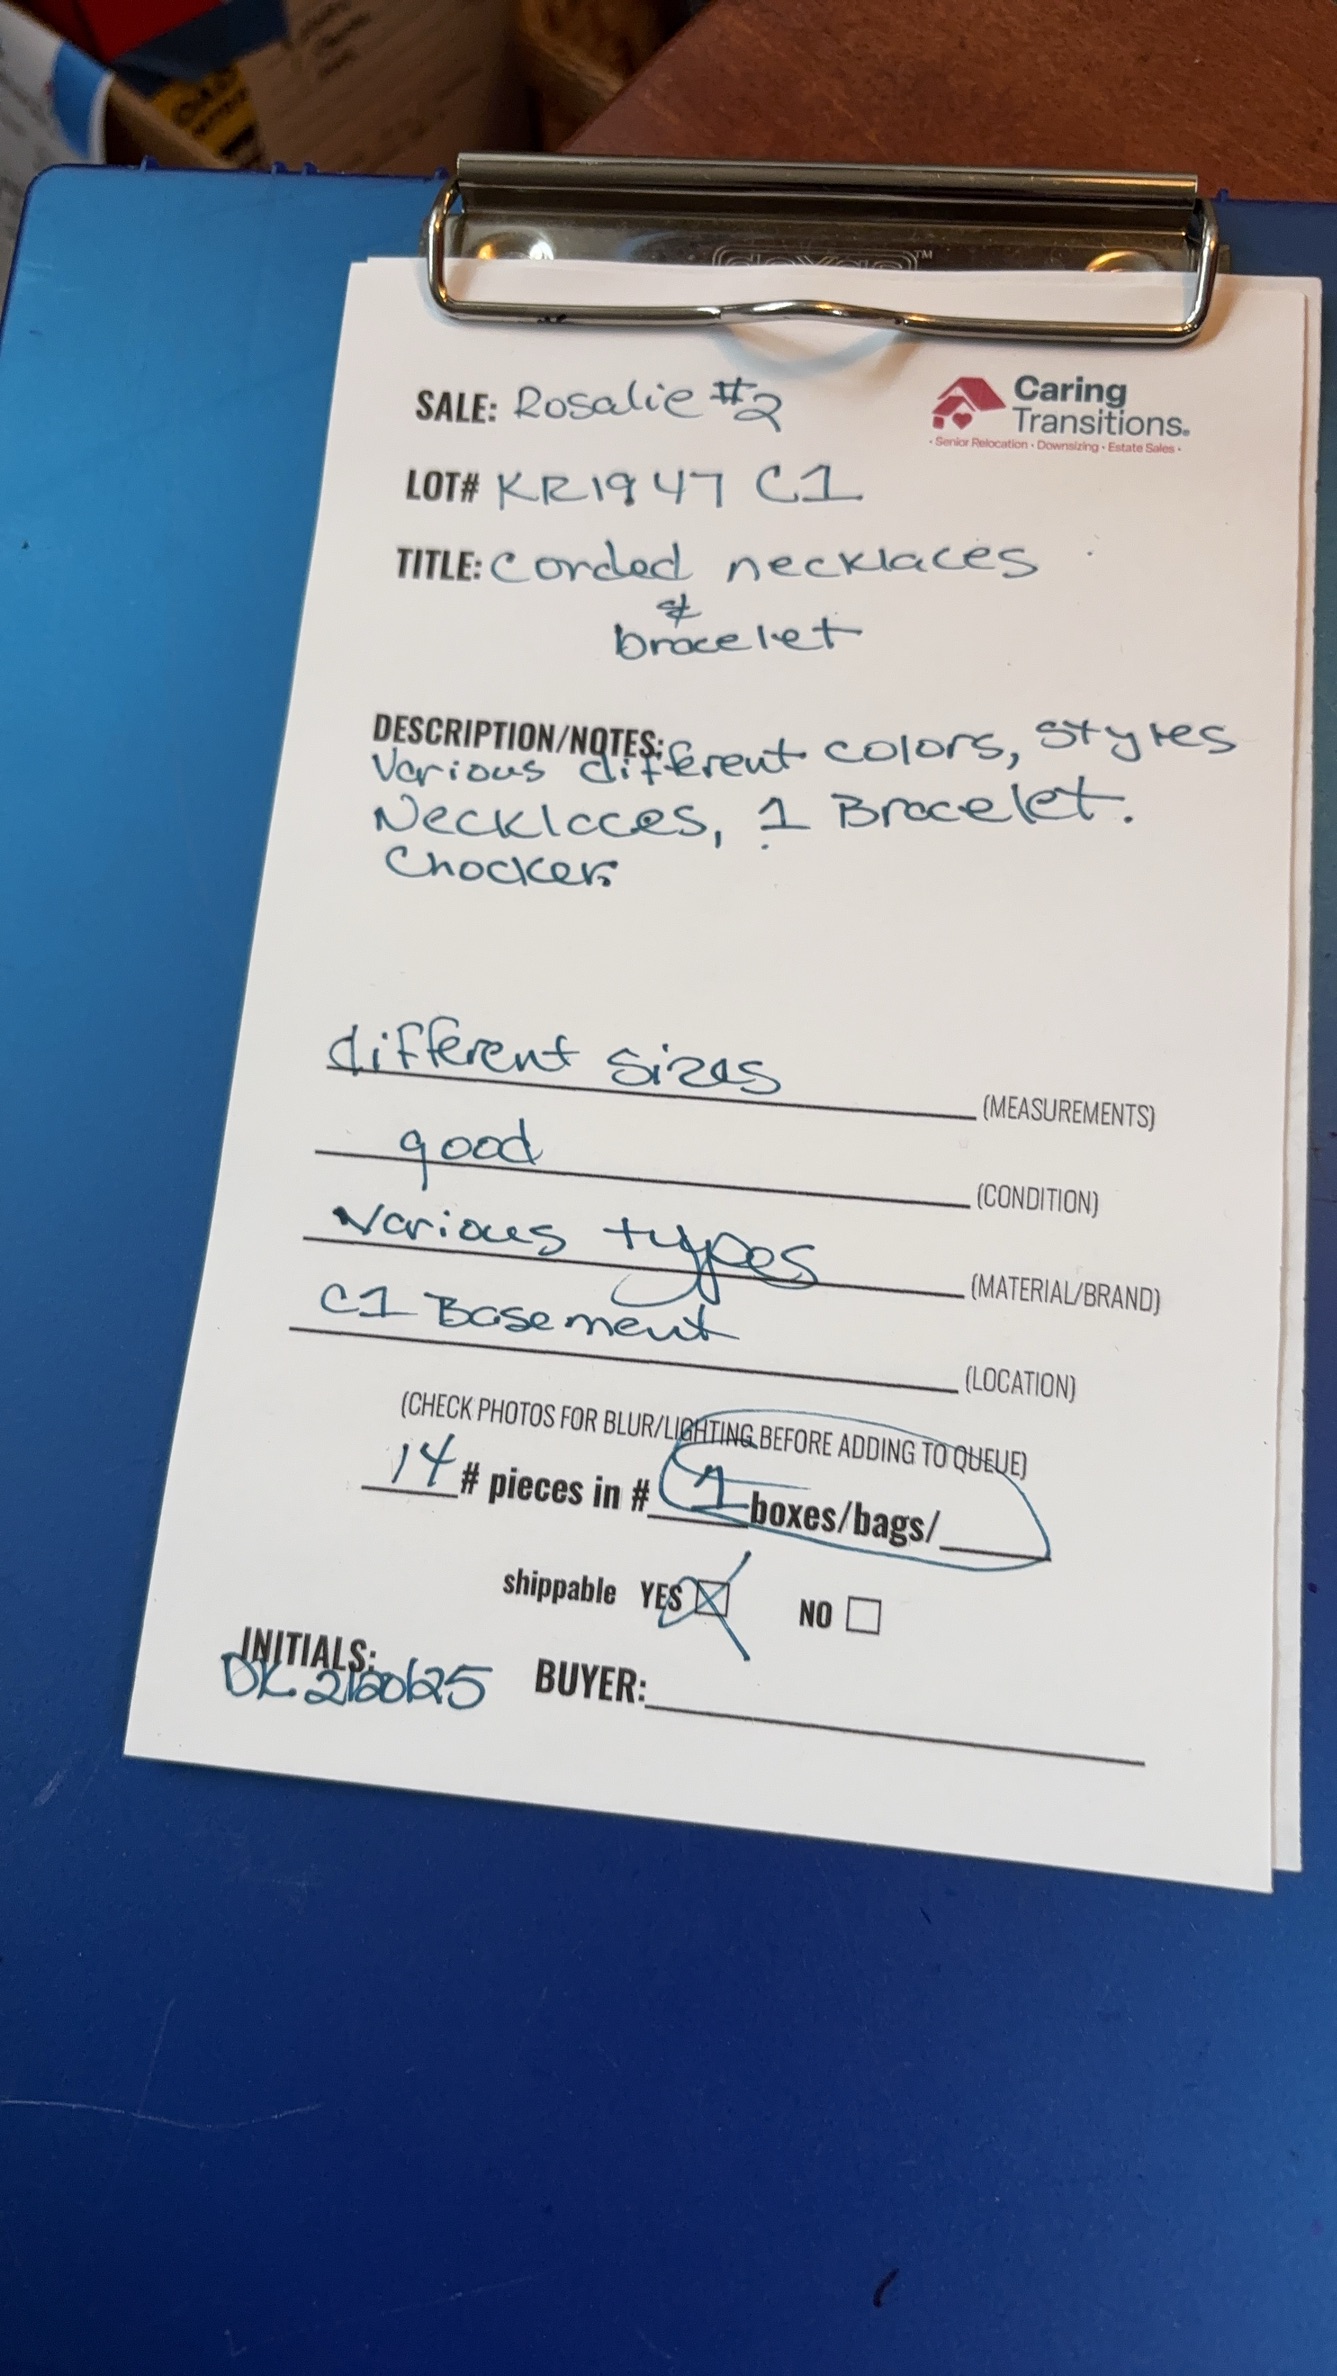 SALE: Rosalie #2
Caring
Transitions.
· Senior Relocation · Downsizing · Estate Sales ·
LOT# KR1947 C1
TITLE: Corded necklaces
&
bracelet
DESCRIPTION/NOTES:
Various different colors, styles
Necklaces, 1 Bracelet.
Chockers
different sizes (MEASUREMENTS)
good (CONDITION)
Various types (MATERIAL/BRAND)
C1 Basement (LOCATION)
(CHECK PHOTOS FOR BLUR/LIGHTING BEFORE ADDING TO QUEUE)
14 # pieces in # 1 boxes/bags/
shippable YES NO
INITIALS: BUYER:
DK 2/20/25